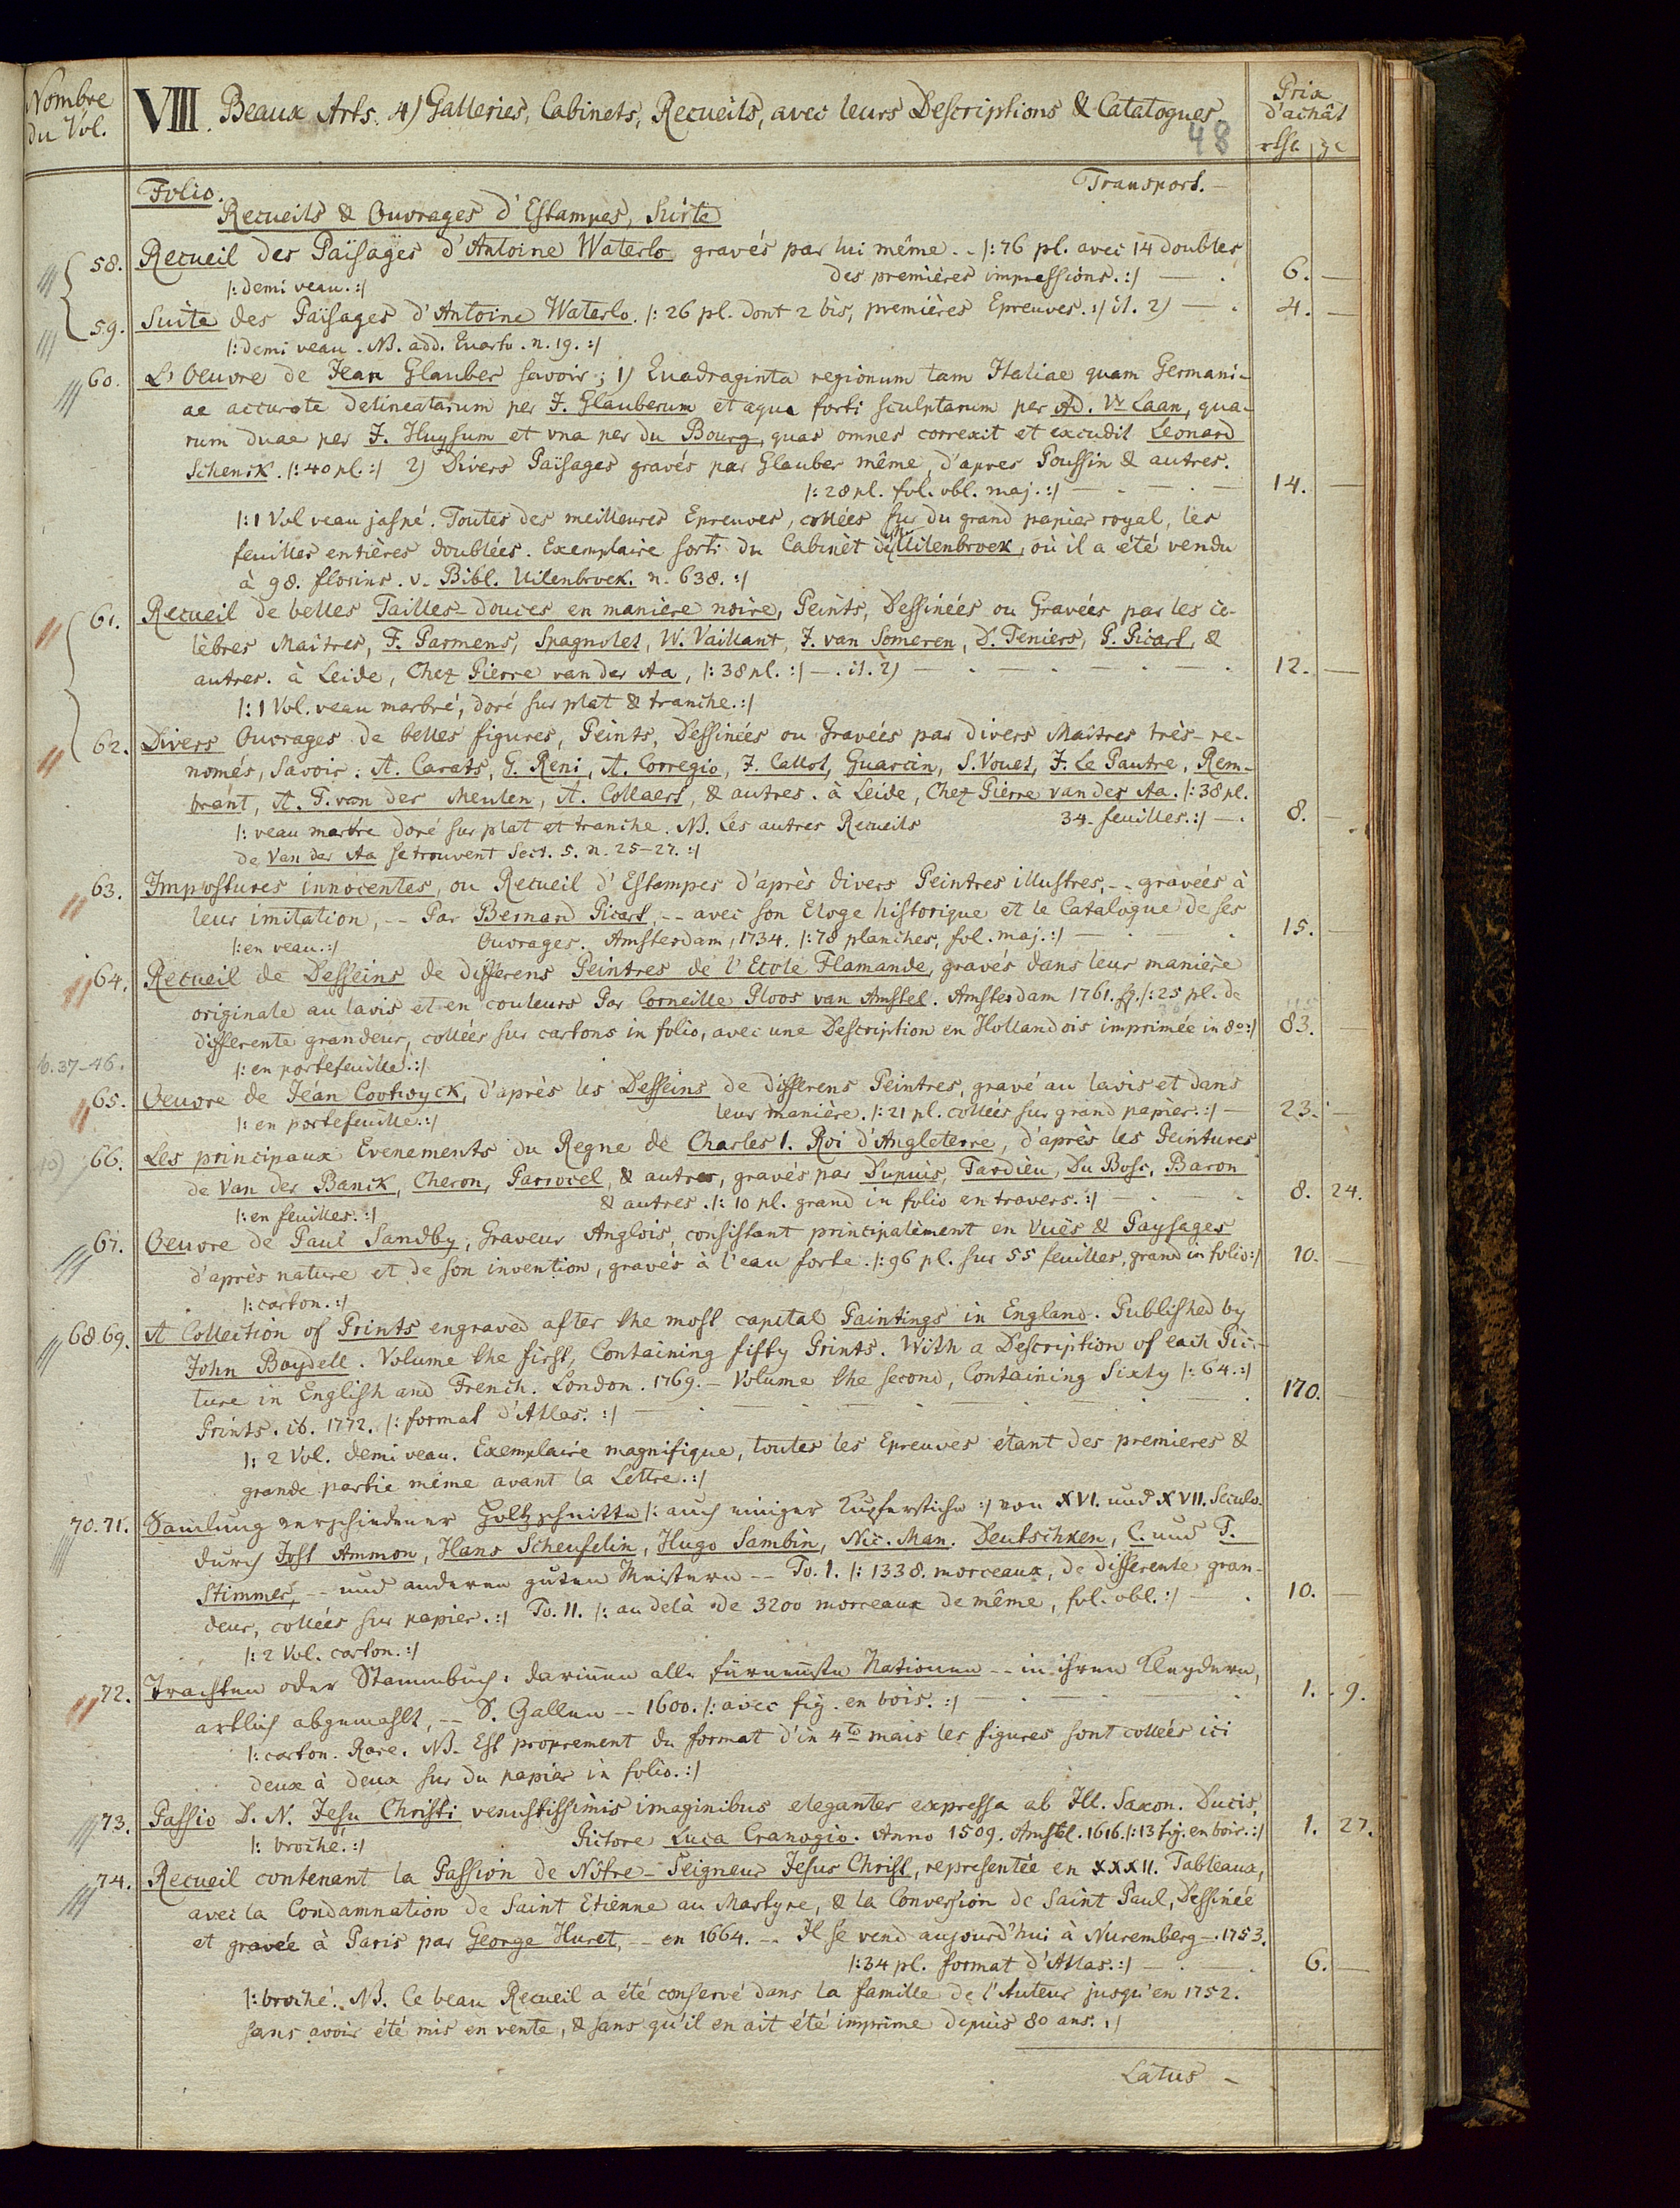 Nombre
du Vol.
VIII. Beaux Arts. 4) Galleries, Cabinets, Recueils, avec leurs Descriptions & Catalogues.
48
Prix
d'achât
Folio.
Transport. —
Recueils & Ouvrages d'Estampes, Suite
58. Recueil des Païsages d'Antoine Waterlo gravés par lui même. - /: 76 pl. avec 14 doubles
des premières impressions. :/ — . 6. —
/: demi veau. :/
59. Suite des Païsages d'Antoine Waterlo. /: 26 pl. dont 2 bis, premières Epreuves. :/ it. 2) — . 4. —
/: demi veau. NB. add. Quarto. n. 19. :/
60. L'Oeuvre de Jean Glauber savoir; 1) Quadraginta regionum tam Italiae quam Germani-
ae accurate delineatarum per J. Glauberum et aqua forti sculptarum per Ad. Vr Laan, qua-
rum duae per J. Huysum et una per du Bourg, quas omnes correxit et excudit Leonard
Schenck. /: 40 pl. :/ 2) Divers Païsages gravés par Glauber même, d'apres Poussin & autres.
/: 28 pl. fol. obl. maj. :/ — . — . — 14. —
/: 1 Vol veau jaspé. Toutes des meilleures Epreuves, collées sur du grand papier royal, les
feuilles entières doublées. Exemplaire sorti du Cabinèt de Uilenbroek, où il a été vendu
à 98. florins. v. Bibl. Uilenbroek. n. 638. :/
61. Recueil de belles Tailles-douces en manière noire, Peints, Dessinées ou Gravées par les cé-
lèbres Maitres, F. Parmens, Spagnolet, W. Vaillant, J. van Someren, D. Teniers, P. Picart, &
autres. à Leide, Chez Pierre vander Aa, /: 38 pl. :/ — . it. 2) — . — . — . — . — . 12. —
/: 1 Vol. veau marbré, doré sur plat & tranche. :/
62. Divers Ouvrages de belles figures, Peints, Dessinées ou Gravées par divers Maitres très-re-
només, Savoir: A. Carats, G. Reni, A. Corregio, J. Callot, Guarcin, S. Vouet, J. Le Pautre, Rem-
brant, A. F. van der Meulen, A. Collaert, & autres. à Leide, Chez Pierre vander Aa. /: 38 pl.
34. feuilles. :/ — . 8. —
/: veau marbre doré sur plat et tranche. NB. Les autres Recueils
de Van der Aa se trouvent Sect. 5. n. 25-27. :/
63. Impostures innocentes, ou Recueil d'Estampes d'après divers Peintres illustres, -- gravées à
leur imitation, -- Par Bernard Picart, -- avec son Eloge historique et le Catalogue de ses
Ouvrages. Amsterdam, 1734. /: 78 planches, fol. maj. :/ — . — . 15. —
/: en veau. :/
64. Recueil de Desseins de differens Peintres de l'Ecole Flamande, gravés dans leur manière
originale au lavis et en couleurs Par Corneille Ploos van Amstel. Amsterdam 1761. sq. /: 25 pl. de
differente grandeur, collées sur cartons in folio, avec une Description en Hollandois imprimée in 8o :/ 83.
b. 37-46.
/: en portefeuille. :/
65. Oeuvre de Jéan Cootwyck, d'après les Desseins de differens Peintres, gravé au lavis et dans
leur manière. /: 21 pl. collées sur grand papier. :/ — 23. —
/: en portefeuille. :/
66. Les principaux Evenements du Regne de Charles I. Roi d'Angleterre, d'après les Peintures
de Van der Banck, Cheron, Parrocel, & autres, gravés par Dupuis, Tardieu, Du Bosc, Baron
& autres. /: 10 pl. grand in folio en travers. :/ — . — . 8. 24.
/: en feuilles. :/
67. Oeuvre de Paul Sandby, Graveur Anglois, consistant principalement en Vuës & Paysages
d'après nature et de son invention, gravés à l'eau forte. /: 96 pl. sur 55 feuilles, grand in folio :/ 10. —
/: carton. :/
68. 69. A Collection of Prints engraved after the most capital Paintings in England. Published by
John Boydell. Volume the first, Containing fifty Prints. With a Description of each Pic-
ture in English and French. London. 1769. — Volume the second, Containing Sixty /: 64. :/
Prints. ib. 1772. /: format d'Atlas. :/ — . — . — . — . — . 170. —
/: 2 Vol. demi veau. Exemplaire magnifique, toutes les Epreuves étant des premieres &
grande partie même avant la Lettre. :/
70. 71. Samlung verschiedener Holtzschnitte /: auch einiger Kupferstiche :/ von XVI. und XVII. Seculo.
durch Jost Ammon, Hans Scheufelin, Hugo Sambin, Nic. Man. Deutschken, C. und T.
Stimmer, -- und anderen guten Meistern -- To. I. /: 1338. morceaux, de differente gran-
deur, collées sur papier. :/ To. II. /: au delà de 3200 morceaux de même, fol. obl. :/ — . 10. —
/: 2 Vol. carton. :/
72. Trachten oder Stammbuch: darinnen alle fürnemste Nationen -- in ihren Kleydern,
artlich abgemahlt, -- S. Gallen -- 1600. /: avec fig. en bois. :/ — . — . — . 1. 9.
/: carton. Rare. NB. Est proprement du format d'in 4to mais les figures sont collées ici
deux à deux sur du papier in folio. :/
73. Passio D. N. Jesu Christi venustissimis imaginibus eleganter expressa ab Ill. Saxon. Ducis,
Pictore Luca Cranogio. Anno 1509. Amstel. 1616. /: 13 fig. en bois. :/ 1. 27.
/: broché. :/
74. Recueil contenant la Passion de Nôtre-Seigneur Jesus Christ, representée en XXXII. Tableaux,
avec la Condamnation de Saint Etienne au Martyre, & la Conversion de Saint Paul, Dessinée
et gravée à Paris par George Huret, -- en 1664. -- Il se vend aujourd'hui à Nuremberg -. 1753.
/: 34 pl. format d'Atlas. :/ — . — . 6. —
/: broché. NB. Ce beau Recueil a été conservé dans la famille de l'Auteur jusqu'en 1752.
sans avoir été mis en vente, & sans qu'il en ait été imprime depuis 80 ans. :/
Latus —